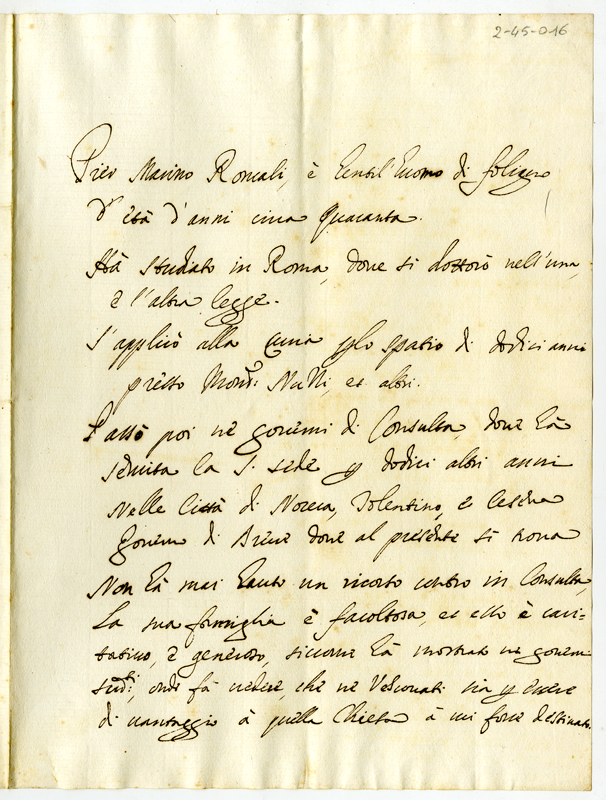 2-45-016
Pier Marino Roncali, è Gentil'huomo di foligno
d'età d'anni circa quaranta.
Hà studiato in Roma, dove si dottorò nell'una,
e l'altra legge.
S'applicò alla Curia p lo spatio di dodici anni
presso Mons.r Nulli, et altri.
Passò poi ne governi di Consulta, dove hà
servita la S. Sede p dodici altri anni
nelle Città di Norcia, Tolentino, e Cesena
Governo di Breve dove al presente si trova
Non hà mai hauto un ricorso contro in Consulta,
La sua famiglia è facoltosa, et esso è cari-
tativo, e generoso, siccome hà mostrato ne governi
sud.ti, onde fà vedere, che ne Vescovati sia p essere
di vantaggio à quella Chiesa à cui fosse destinato.